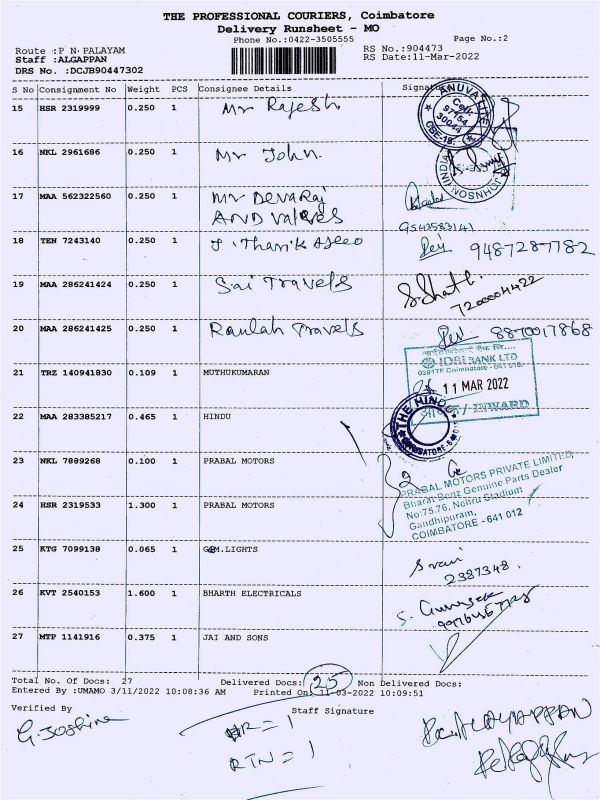 THE PROFESSIONAL COURIERS, Coimbatore
Delivery Runsheet - MO
Phone No.:0422-3505555
Page No.:2
Route :P N. PALAYAM
RS No.:904473
Staff :ALGAPPAN
RS Date:11-Mar-2022
DRS No. :DCJB90447302
S No Consignment No Weight PCS Consignee Details Signature
15 HSR 2319999 0.250 1 Mr Rajesh
16 NKL 2961686 0.250 1 Mr John.
17 MAA 562322560 0.250 1 Mr Devaraj
AND Valves
18 TEN 7243140 0.250 1 9487287782
19 MAA 286241424 0.250 1 Sai Travels
7200004422
20 MAA 286241425 0.250 1 Raulah Travels 8870017868
IDBI BANK LTD
21 TRZ 140941830 0.109 1 MUTHUKUMARAN
11 MAR 2022
INWARD
22 MAA 283385217 0.465 1 HINDU
THE HINDU
COIMBATORE
23 NKL 7889268 0.100 1 PRABAL MOTORS
PRABAL MOTORS PRIVATE LIMITED
Bharat Benz Genuine Parts Dealer
No:75,76, Nehru Stadium
Gandhipuram,
COIMBATORE - 641 012
24 HSR 2319533 1.300 1 PRABAL MOTORS
25 KTG 7099138 0.065 1 GM.LIGHTS
2387348.
26 KVT 2540153 1.600 1 BHARTH ELECTRICALS
27 MTP 1141916 0.375 1 JAI AND SONS
Total No. Of Docs: 27 Delivered Docs: 25 Non Delivered Docs:
Entered By :UMAMO 3/11/2022 10:08:36 AM Printed On: 11-03-2022 10:09:51
Verified By Staff Signature
G. Joshine
RTN = 1